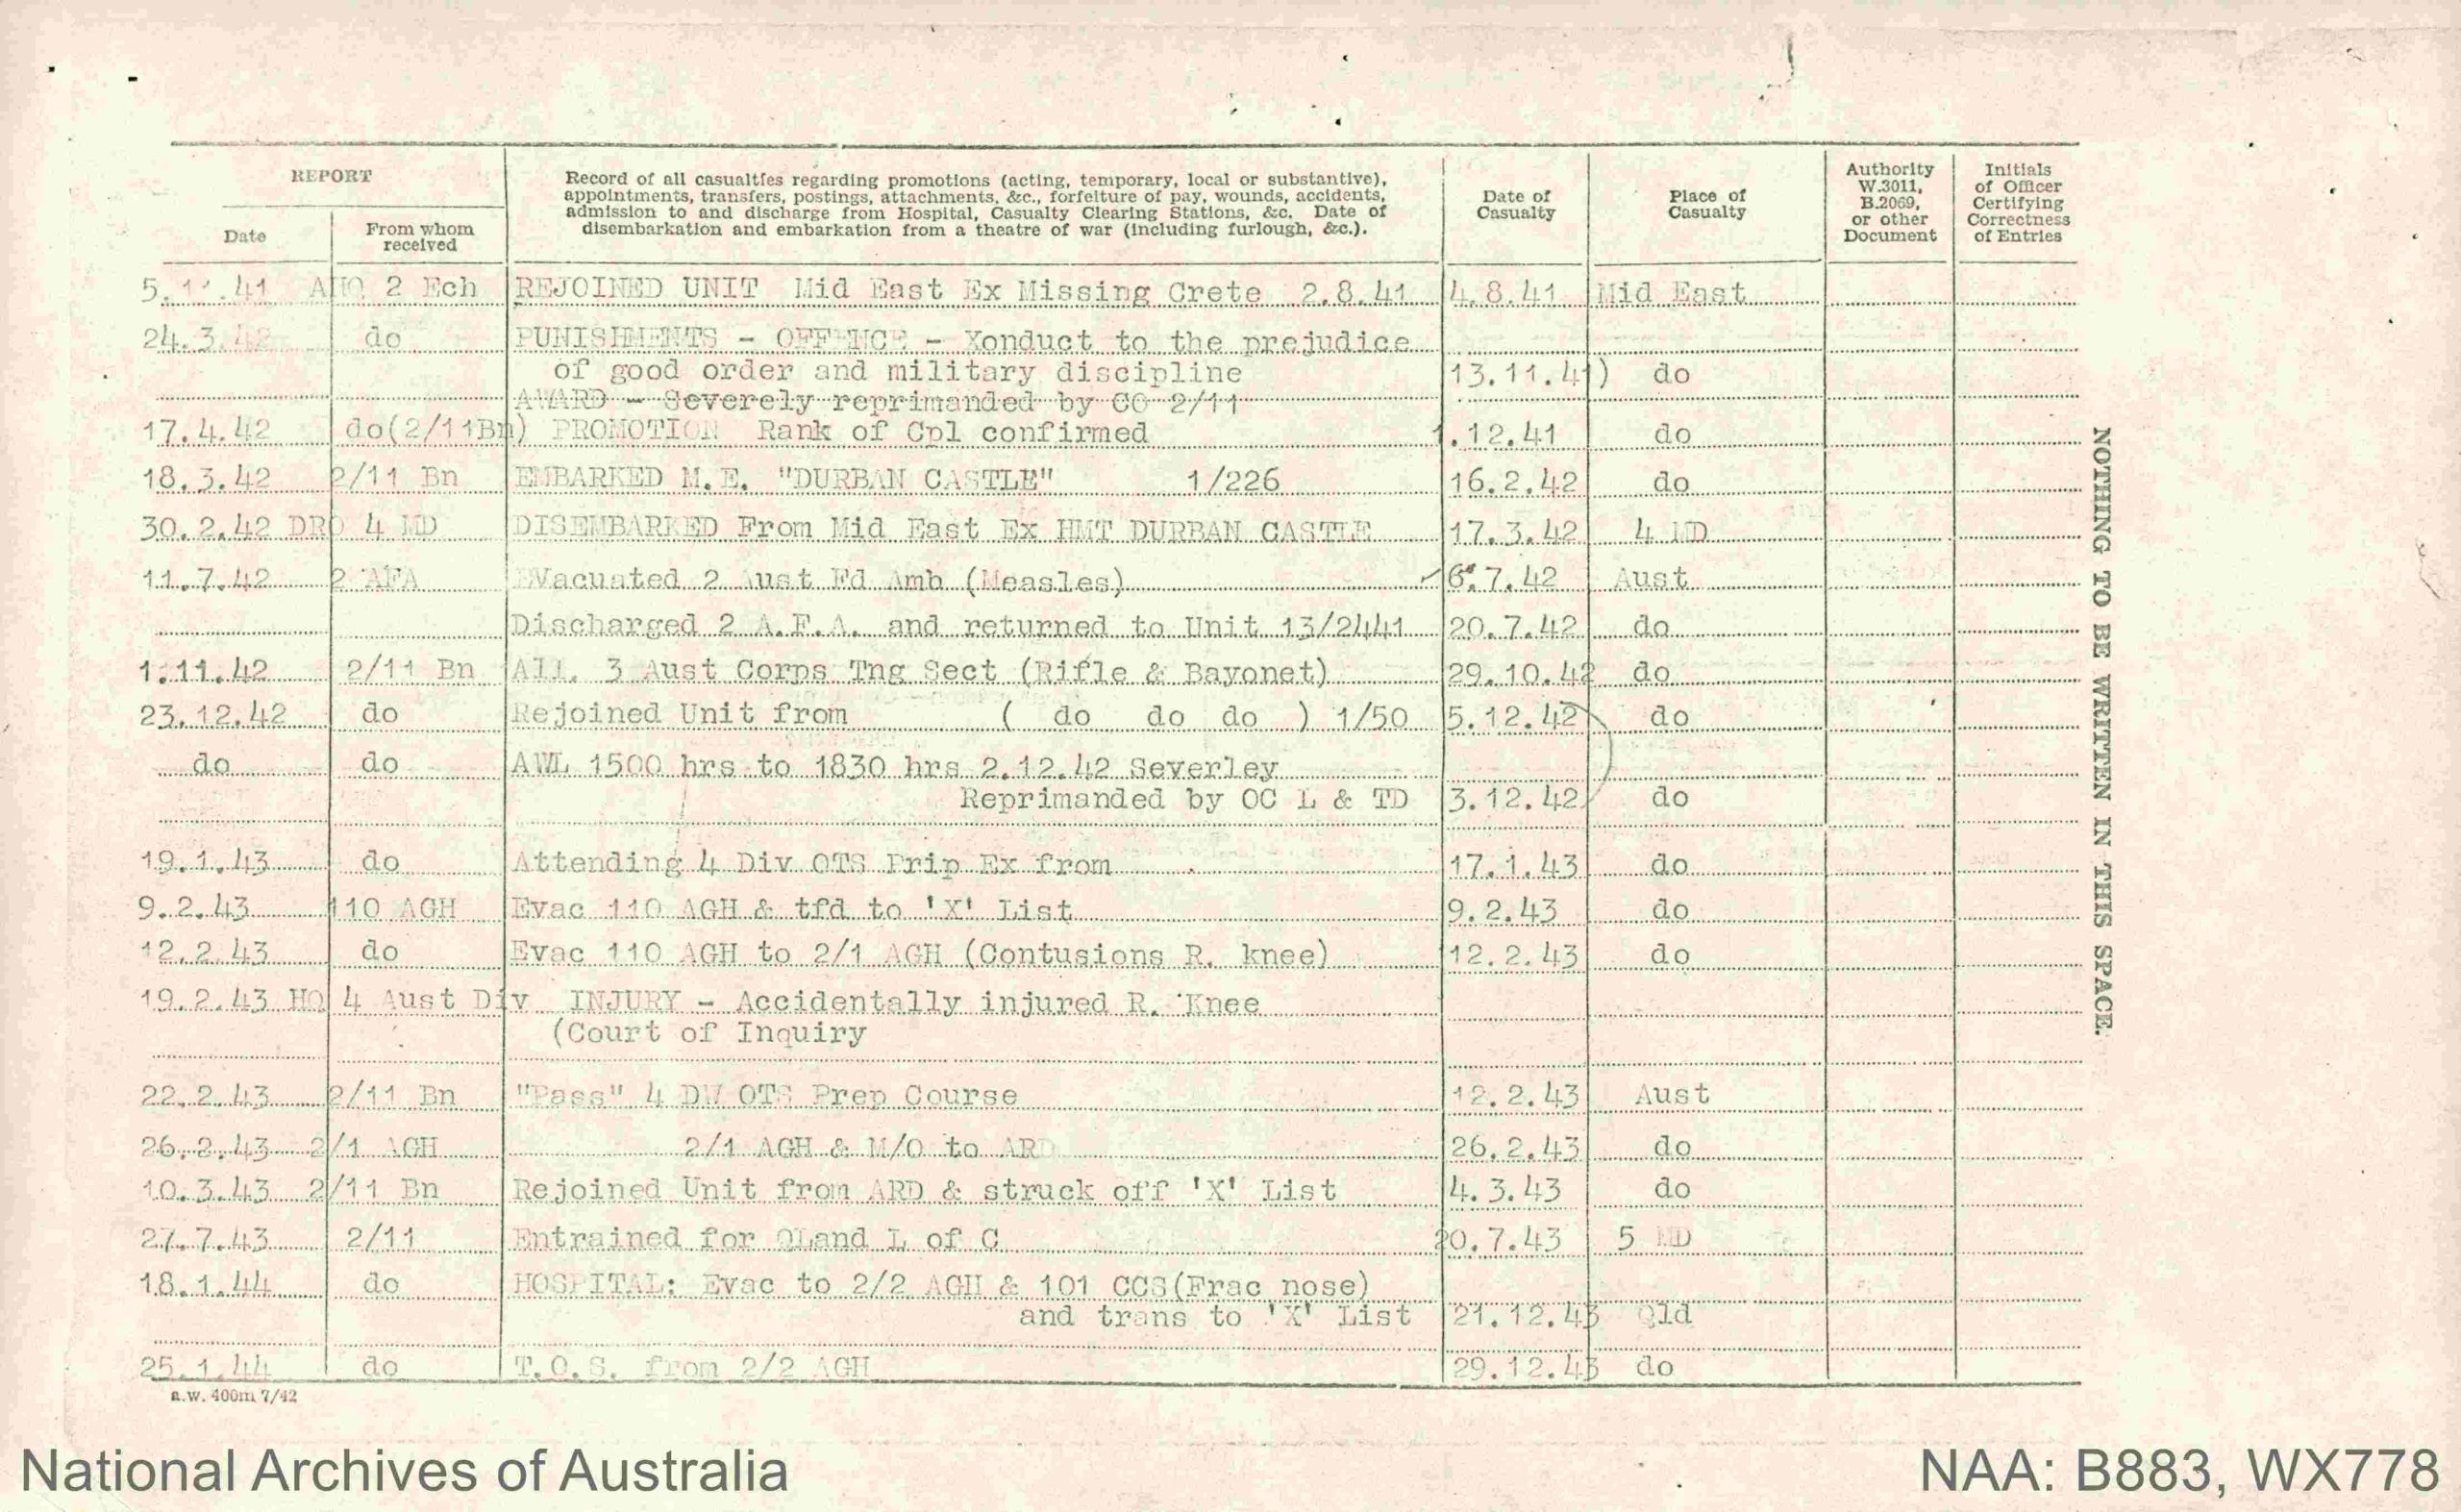 REPORT
Date
From whom received
Record of all casualties regarding promotions (acting, temporary, local or substantive),
appointments, transfers, postings, attachments, &c., forfeiture of pay, wounds, accidents,
admission to and discharge from Hospital, Casualty Clearing Stations, &c. Date of
disembarkation and embarkation from a theatre of war (including furlough, &c.).
Date of Casualty
Place of Casualty
Authority W.3011, B.2069, or other Document
Initials of Officer Certifying Correctness of Entries
5.11.41 AHQ 2 Ech REJOINED UNIT Mid East Ex Missing Crete 2.8.41 4.8.41 Mid East
24.3.42 do PUNISHMENTS - OFFENCE - Xonduct to the prejudice
of good order and military discipline 13.11.41) do
AWARD - Severely reprimanded by CO 2/11
17.4.42 do(2/11Bn) PROMOTION Rank of Cpl confirmed 1.12.41 do
18.3.42 2/11 Bn EMBARKED M.E. "DURBAN CASTLE" 1/226 16.2.42 do
30.2.42 DRO 4 MD DISEMBARKED From Mid East Ex HMT DURBAN CASTLE 17.3.42 4 MD
11.7.42 2 AFA EVacuated 2 Aust Fd Amb (Measles) 6.7.42 Aust
Discharged 2 A.F.A. and returned to Unit 13/2441 20.7.42 do
1.11.42 2/11 Bn All. 3 Aust Corps Tng Sect (Rifle & Bayonet) 29.10.42 do
23.12.42 do Rejoined Unit from ( do do do ) 1/50 5.12.42 do
do do AWL 1500 hrs to 1830 hrs 2.12.42 Severley
Reprimanded by OC L & TD 3.12.42 do
19.1.43 do Attending 4 Div OTS Prip Ex from 17.1.43 do
9.2.43 110 AGH Evac 110 AGH & tfd to 'X' List 9.2.43 do
12.2.43 do Evac 110 AGH to 2/1 AGH (Contusions R. knee) 12.2.43 do
19.2.43 HQ 4 Aust Div INJURY - Accidentally injured R. Knee
(Court of Inquiry
22.2.43 2/11 Bn "Pass" 4 DIV OTS Prep Course 12.2.43 Aust
26.2.43 2/1 AGH 2/1 AGH & M/O to ARD 26.2.43 do
10.3.43 2/11 Bn Rejoined Unit from ARD & struck off 'X' List 4.3.43 do
27.7.43 2/11 Entrained for QLand L of C 20.7.43 5 MD
18.1.44 do HOSPITAL: Evac to 2/2 AGH & 101 CCS(Frac nose)
and trans to 'X' List 21.12.43 Qld
25.1.44 do T.O.S. from 2/2 AGH 29.12.43 do
a.w. 400m 7/42
NOTHING TO BE WRITTEN IN THIS SPACE.
National Archives of Australia
NAA: B883, WX778